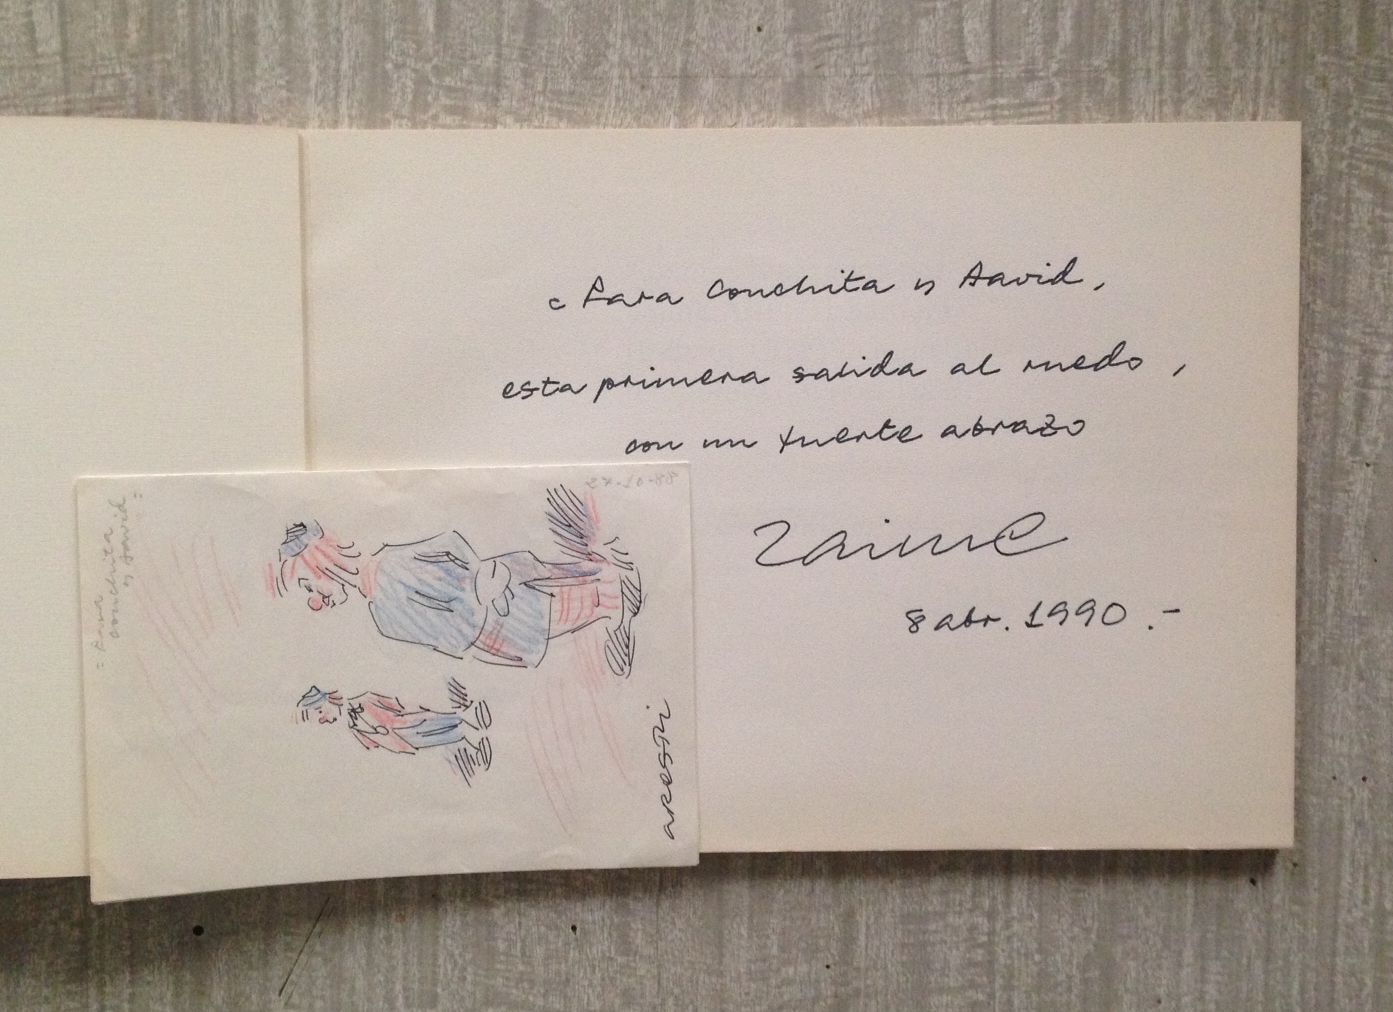 = Para Conchita y David,
esta primera salida al ruedo,
con un fuerte abrazo
Jaime
8 abr. 1990.-
= Para
conchita
y David =